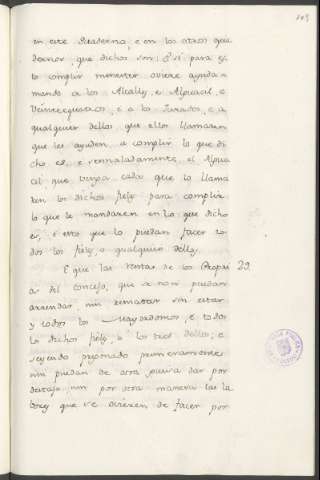 en este Quaderno, e en los otros qua
dernos, que dichos son: E si para es
lo complir menester oviere ayuda a
mando a los Alcalles, e Alguacil, e
Veintequatros, e a los Jurados, e a
qualquier dellos, que ellos llamaren
que les ayuden, a complir lo que di
cho es, e sennaladamente, el Algua
cil, que venga cada que lo llama
ren los dichos fieles para complir
lo que le mandaren en lo que dicho
es, e esto que lo puedan facer to
dos los fieles, o qualquier dellos.
E que las rentas de los Propri 29
os del concejo, que a non puedan
arrendar, nin rematar sin estar
y todos los Mayordomos, e todos
los dichos fieles, o los tres dellos, e
seyendo pregonado primeramente
nin puedan de otra guisa dar por
destajo, nin por otra manera las la
bores que se ovieren de facer por